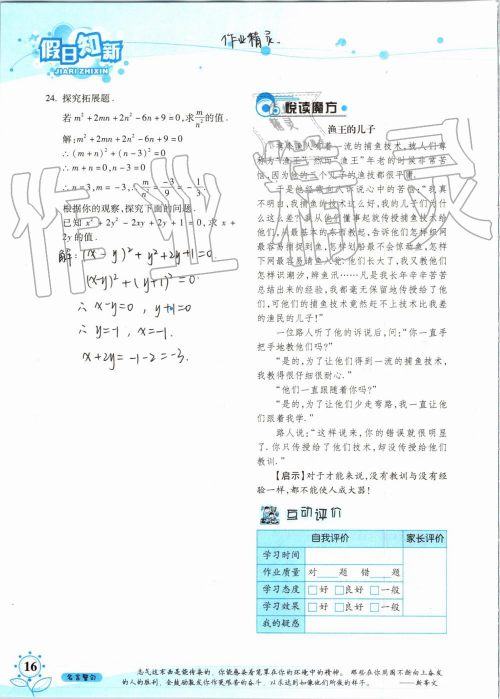 假日知新
JIARI ZHIXIN
作业精灵
24. 探究拓展题.
若 m²+2mn+2n²-6n+9=0,求m/n²的值.
解:m²+2mn+2n²-6n+9=0
∴(m+n)²+(n-3)²=0
∴m+n=0,n-3=0
∴n=3,m=-3,∴m/n²=-3/9=-1/3.
根据你的观察,探究下面的问题.
已知 x²+2y²-2xy+2y+1=0,求 x+
2y的值.
解:(x-y)²+y²+2y+1=0
(x-y)²+(y+1)²=0
∴ x-y=0, y+1=0
∴ y=-1, x=-1.
x+2y=-1-2=-3.
悦读魔方
渔王的儿子
有个渔人有着一流的捕鱼技术,被人们尊
称为“渔王”.然而“渔王”年老的时候非常苦
恼,因为他的三个儿子的渔技都很平庸.
于是他经常向人诉说心中的苦恼:“我真
不明白,我捕鱼的技术这么好,我的儿子们为什
么这么差?我从他们懂事起就传授捕鱼技术给
他们,从最基本的东西教起,告诉他们怎样织网
最容易捕捉到鱼,怎样划船最不会惊动鱼,怎样
下网最容易请鱼入瓮.他们长大了,我又教他们
怎样识潮汐,辨鱼汛……凡是我长年辛辛苦苦
总结出来的经验,我都毫无保留地传授给了他
们,可他们的捕鱼技术竟然赶不上技术比我差
的渔民的儿子!”
一位路人听了他的诉说后,问:“你一直手
把手地教他们吗?”
“是的,为了让他们得到一流的捕鱼技术,
我教得很仔细很耐心.”
“他们一直跟随着你吗?”
“是的,为了让他们少走弯路,我一直让他
们跟着我学.”
路人说:“这样说来,你的错误就很明显
了.你只传授给了他们技术,却没传授给他们
教训.”
【启示】对于才能来说,没有教训与没有经
验一样,都不能使人成大器!
互动评价
自我评价 家长评价
学习时间
作业质量 对____题 错____题
学习态度 □好 □良好 □一般
学习效果 □好 □良好 □一般
我的疑惑
16
名言警句
志气这东西是能传染的,你能感染着笼罩在你的环境中的精神.那些在你周围不断向上奋发
的人的胜利,会鼓励激发你作更艰苦的奋斗,以求达到如像他们所做的样子.
——斯蒂文
作业精灵